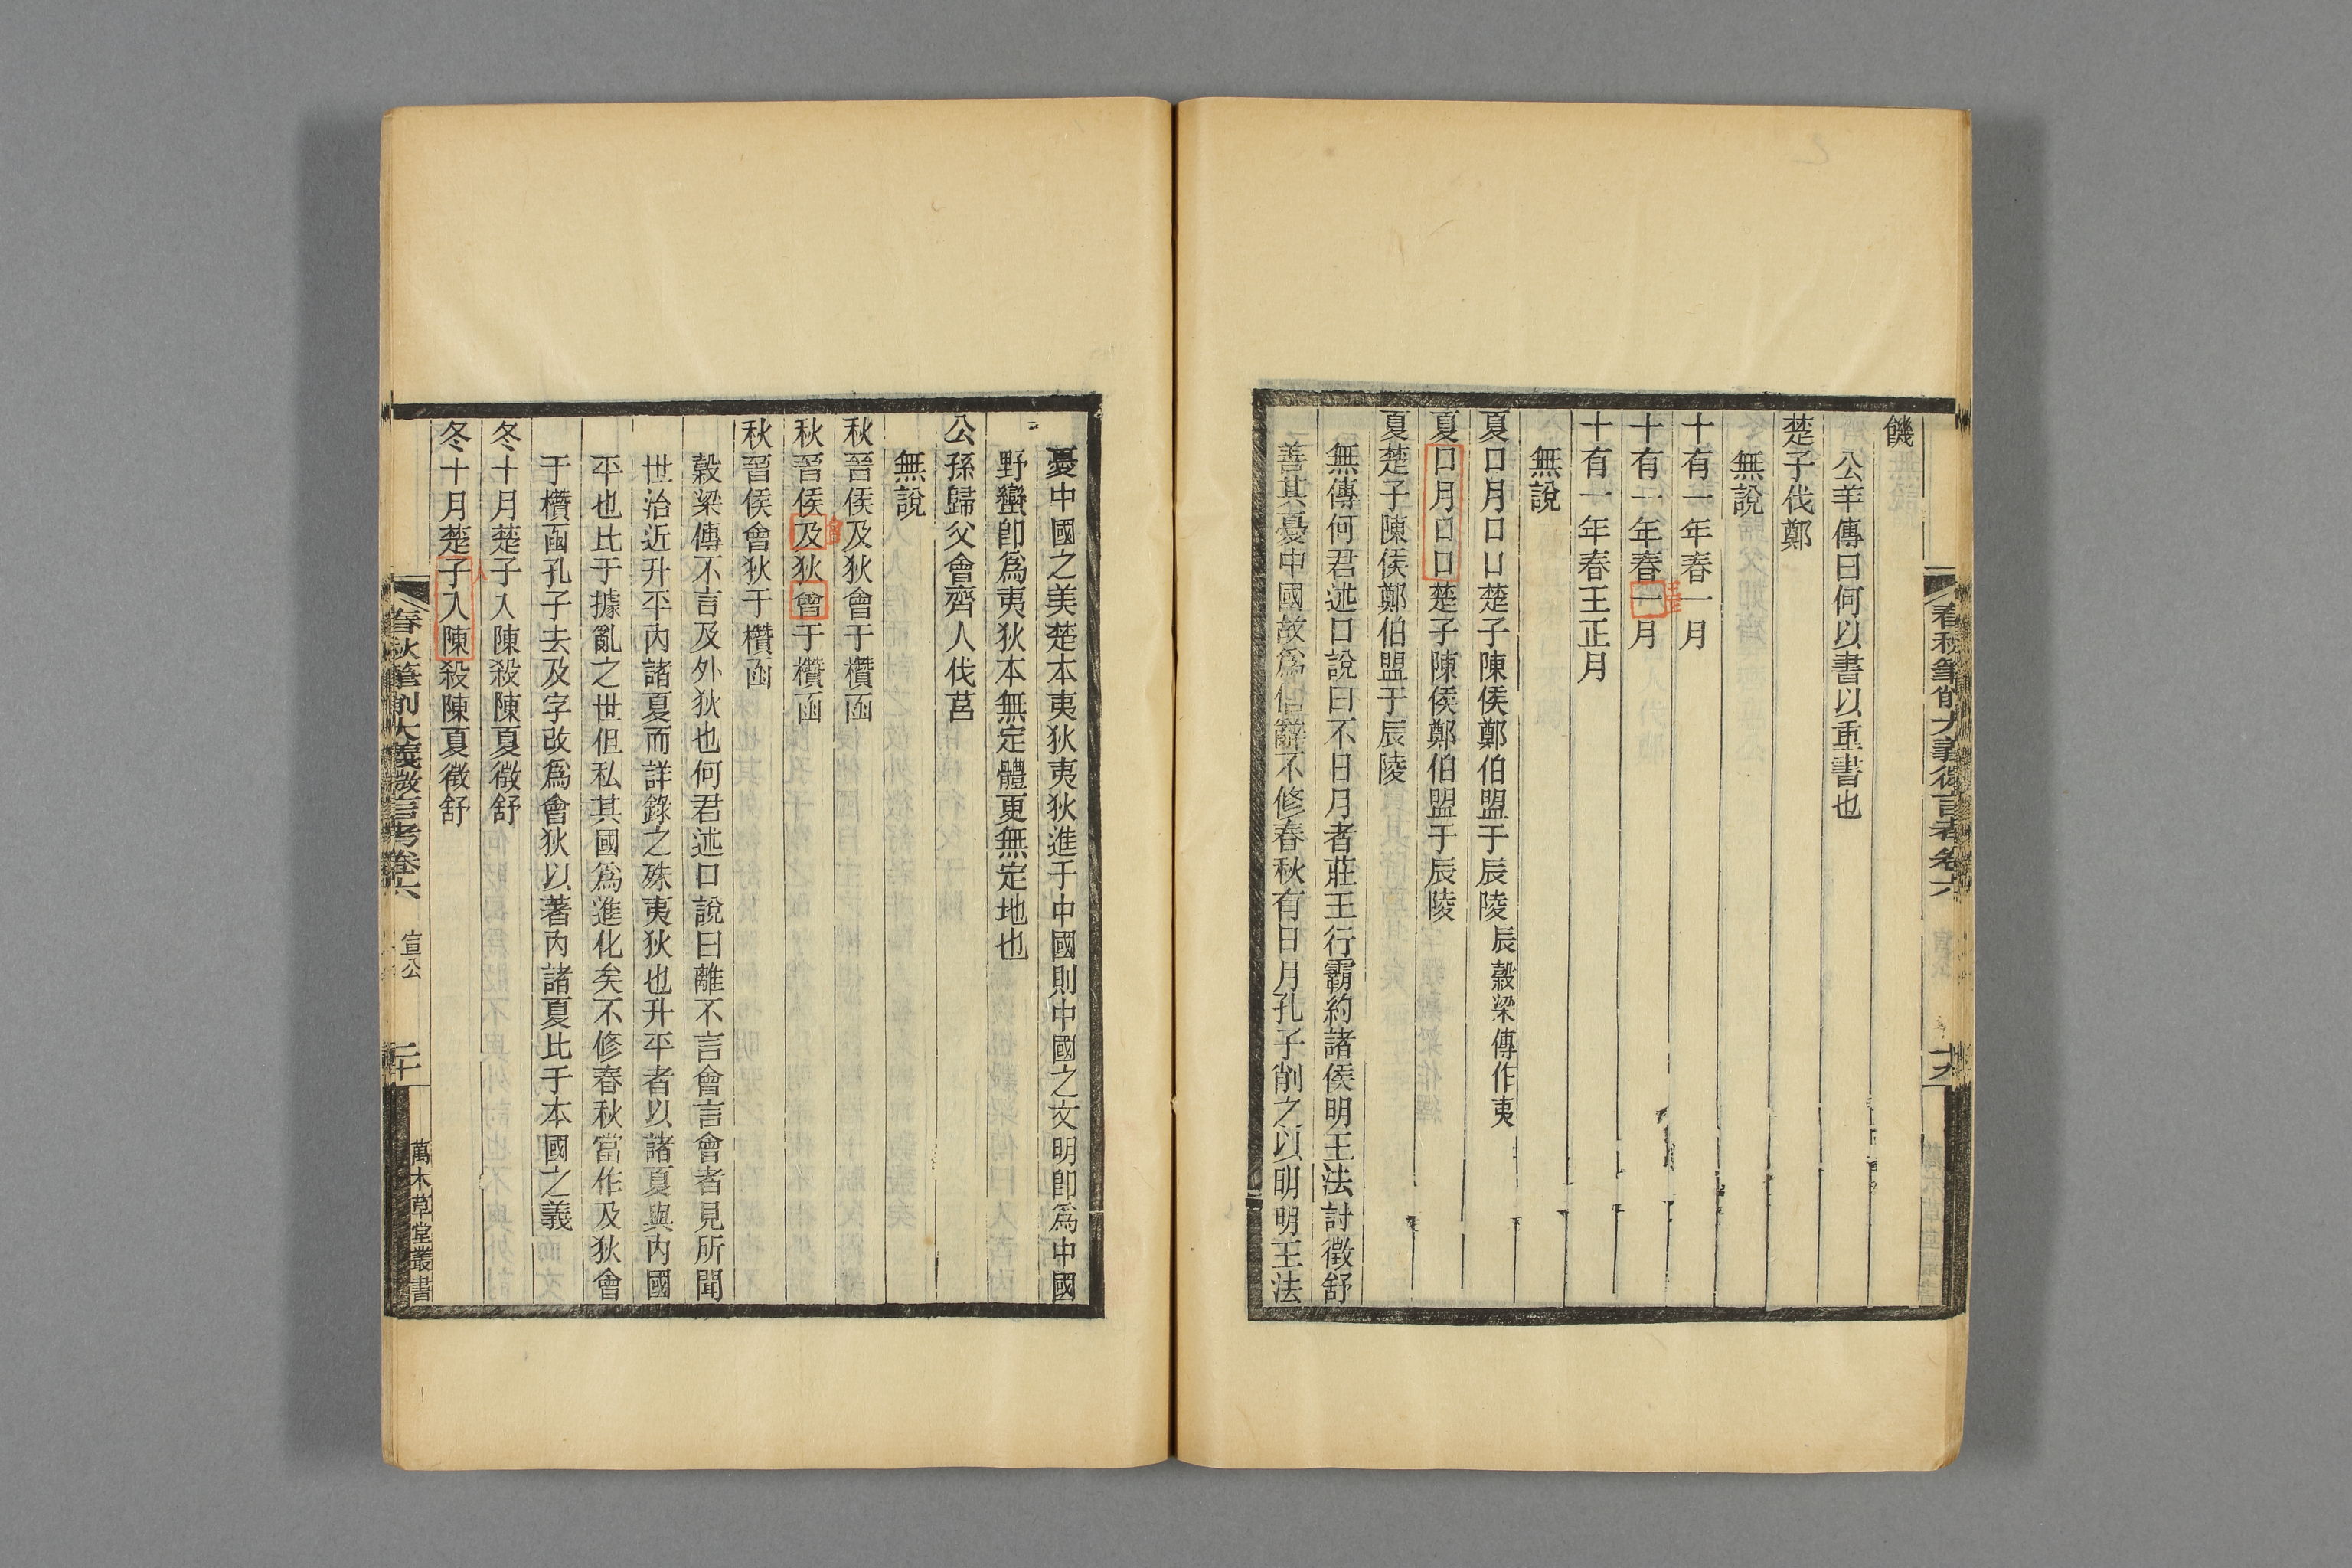 饑
公羊傳曰何以書以重書也
楚子伐鄭
無說
十有一年春一月
十有一年春一月
王正
十有一年春王正月
無說
夏口月口口楚子陳侯鄭伯盟于辰陵辰穀梁傳作夷
夏口月口口楚子陳侯鄭伯盟于辰陵
夏楚子陳侯鄭伯盟于辰陵
無傳何君述口說曰不日月者莊王行霸約諸侯明王法討徵舒
善其憂中國故爲信辭不修春秋有日月孔子削之以明明王法
春秋筆削大義微言考卷六
十九
憂中國之美楚本夷狄夷狄進于中國則中國之文明卽爲中國
野蠻卽爲夷狄本無定體更無定地也
公孫歸父會齊人伐莒
無說
秋晉侯及狄會于欑函
會
秋晉侯及狄會于欑函
秋晉侯會狄于欑函
穀梁傳不言及外狄也何君述口說曰離不言會言會者見所聞
世治近升平內諸夏而詳錄之殊夷狄也升平者以諸夏與內國
平也比于據亂之世但私其國爲進化矣不修春秋當作及狄會
于欑函孔子去及字改爲會狄以著內諸夏比于本國之義
冬十月楚子入陳殺陳夏徵舒
人
冬十月楚子入陳殺陳夏徵舒
春秋筆削大義微言考卷六
宣公
二十
萬木草堂叢書